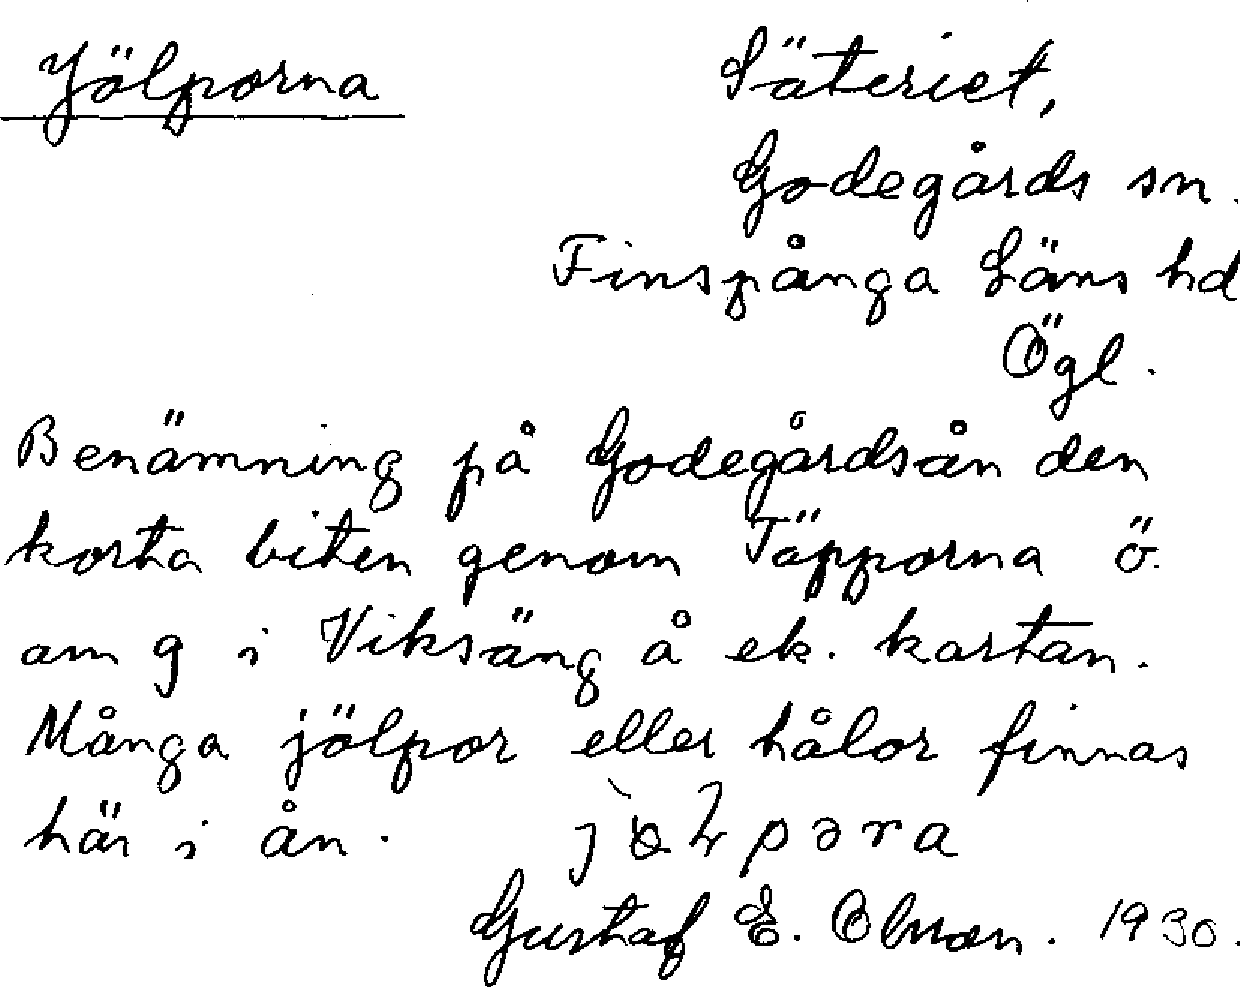 Jölporna
Säteriet,
Godegårds sn.
Finspånga Läns hd
Ögl.
Benämning på Godegårdsån den
korta biten genom Täpporna ö.
om g i Viksäng å ek. kartan.
Många jölpor eller hålor finnas
här i ån.
Gustaf E. Olson. 1930.